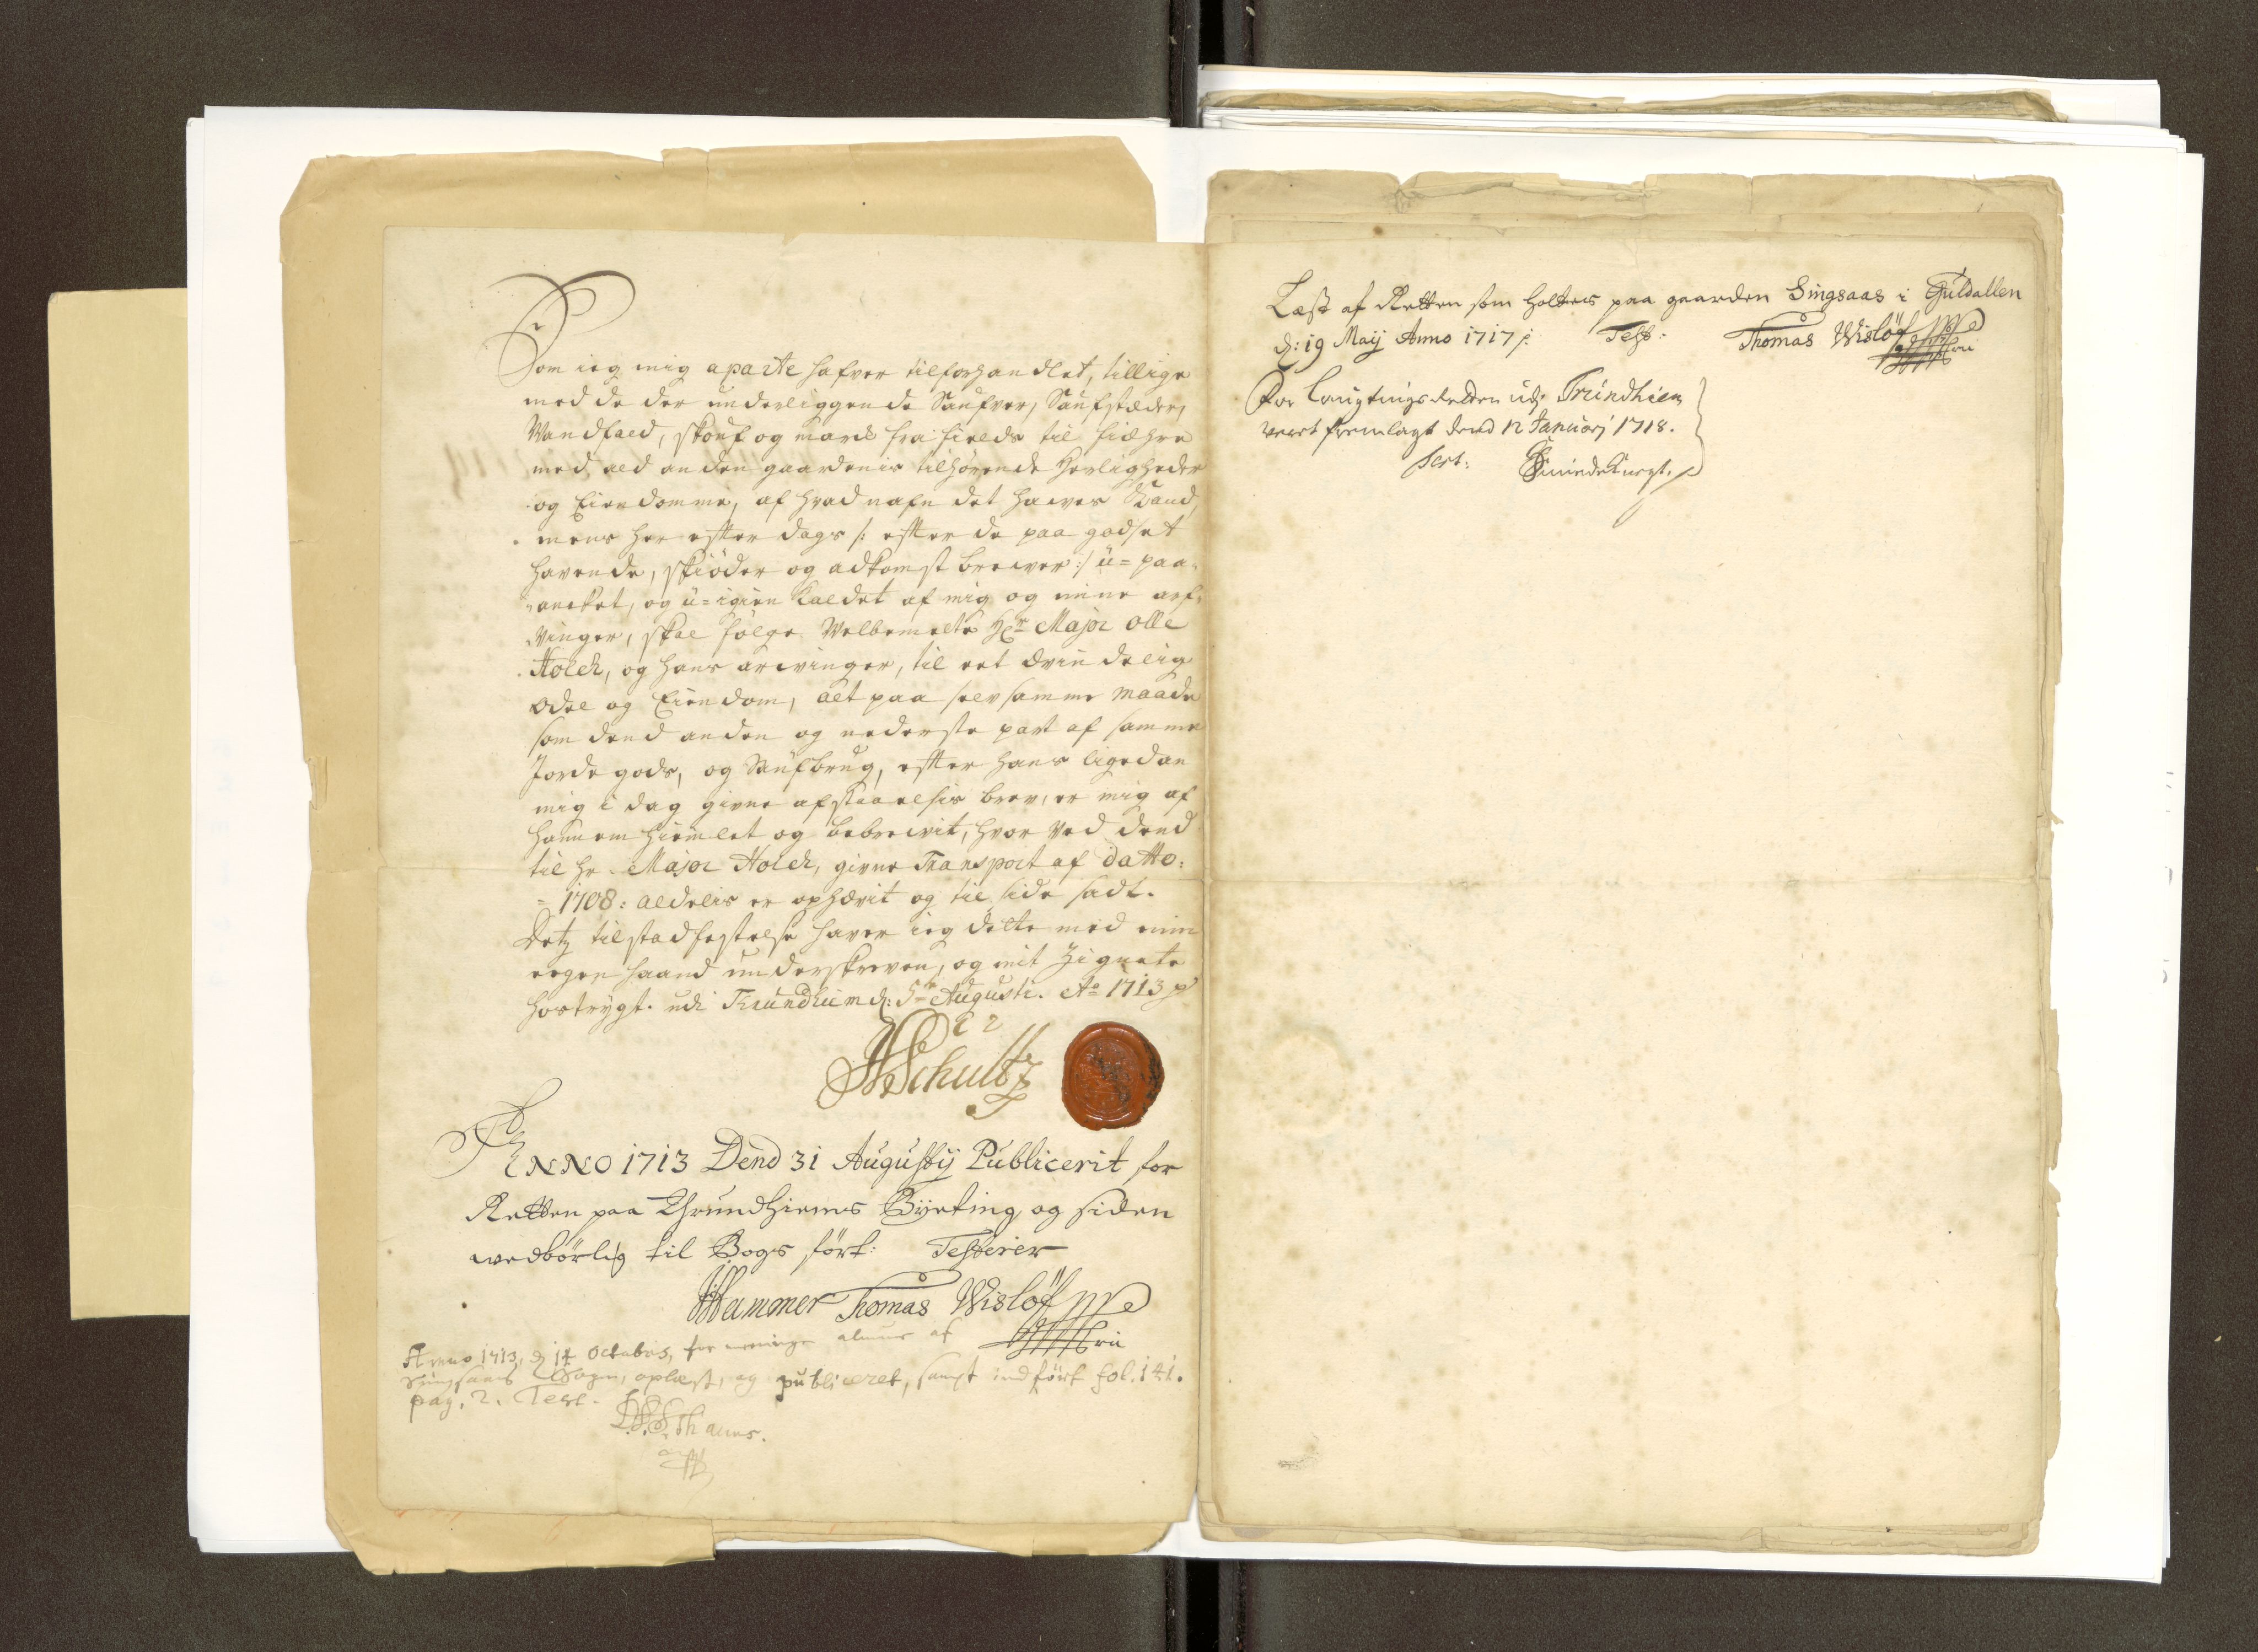 Som ieg mig aparte hafver tilforhandlet, tillige
med de der underliggende Saufver, Saufstæder,
Wandfald, skouf og march fra fields til fiehre
med ald anden gaardenis tilhørende Herligheder
og Eiendomme, af hvad nafn det haeves Kand,
mens her effter dags /: effter de paa godset
havende, skiöder og adkomst brewer :/ u=paa-
ancket, og u=igien kaldet af mig og mine arf-
vinger, skal følge Welbemelte Hr Major Olle
Holck, og hans arwinger, til eet uvindelig
Odel og Eiendom, alt paa selvsamme maade
som dend anden og nederste part af samme
Jorde gods, og Saufbrug, effter hans ligedan
mig i dag givne afstaaelsis brev, er mig af
hannem hiemlet og bebrewit, hvor ved dend
til hr. Major Holck, givne Transport af datto:
=1708: aldelis er ophævit og til side sadt.
Detz til stadfestelse haver ieg dette med min
eegen haand underskreven, og mit Zignete
hostrygt. udi Trundhiem d: 5te Augusti. Ao 1713
Schultz
ANNO 1713 Dend 31 Augusty Publicerit for
Retten paa Thrundhiems Byeting og siden
wedbörlig til Bogs fört: Testerer
Hammer Thomas Wislöff mpp
Anno 1713, d 14 Octobris, for meenige almue af
Singsaas Sogn, oplæst, og publiceret, sampt indfört fol. 141.
pag. 2. Test.
Læst af Retten som holtes paa gaarden Singsaas i Guldallen
d: 19 Maij Anno 1717 /: Test: Thomas Wislöff mpp
For Laugtings Retten udj Trundhiem
veret fremlagt dend 12 Januarj 1718.
Test: